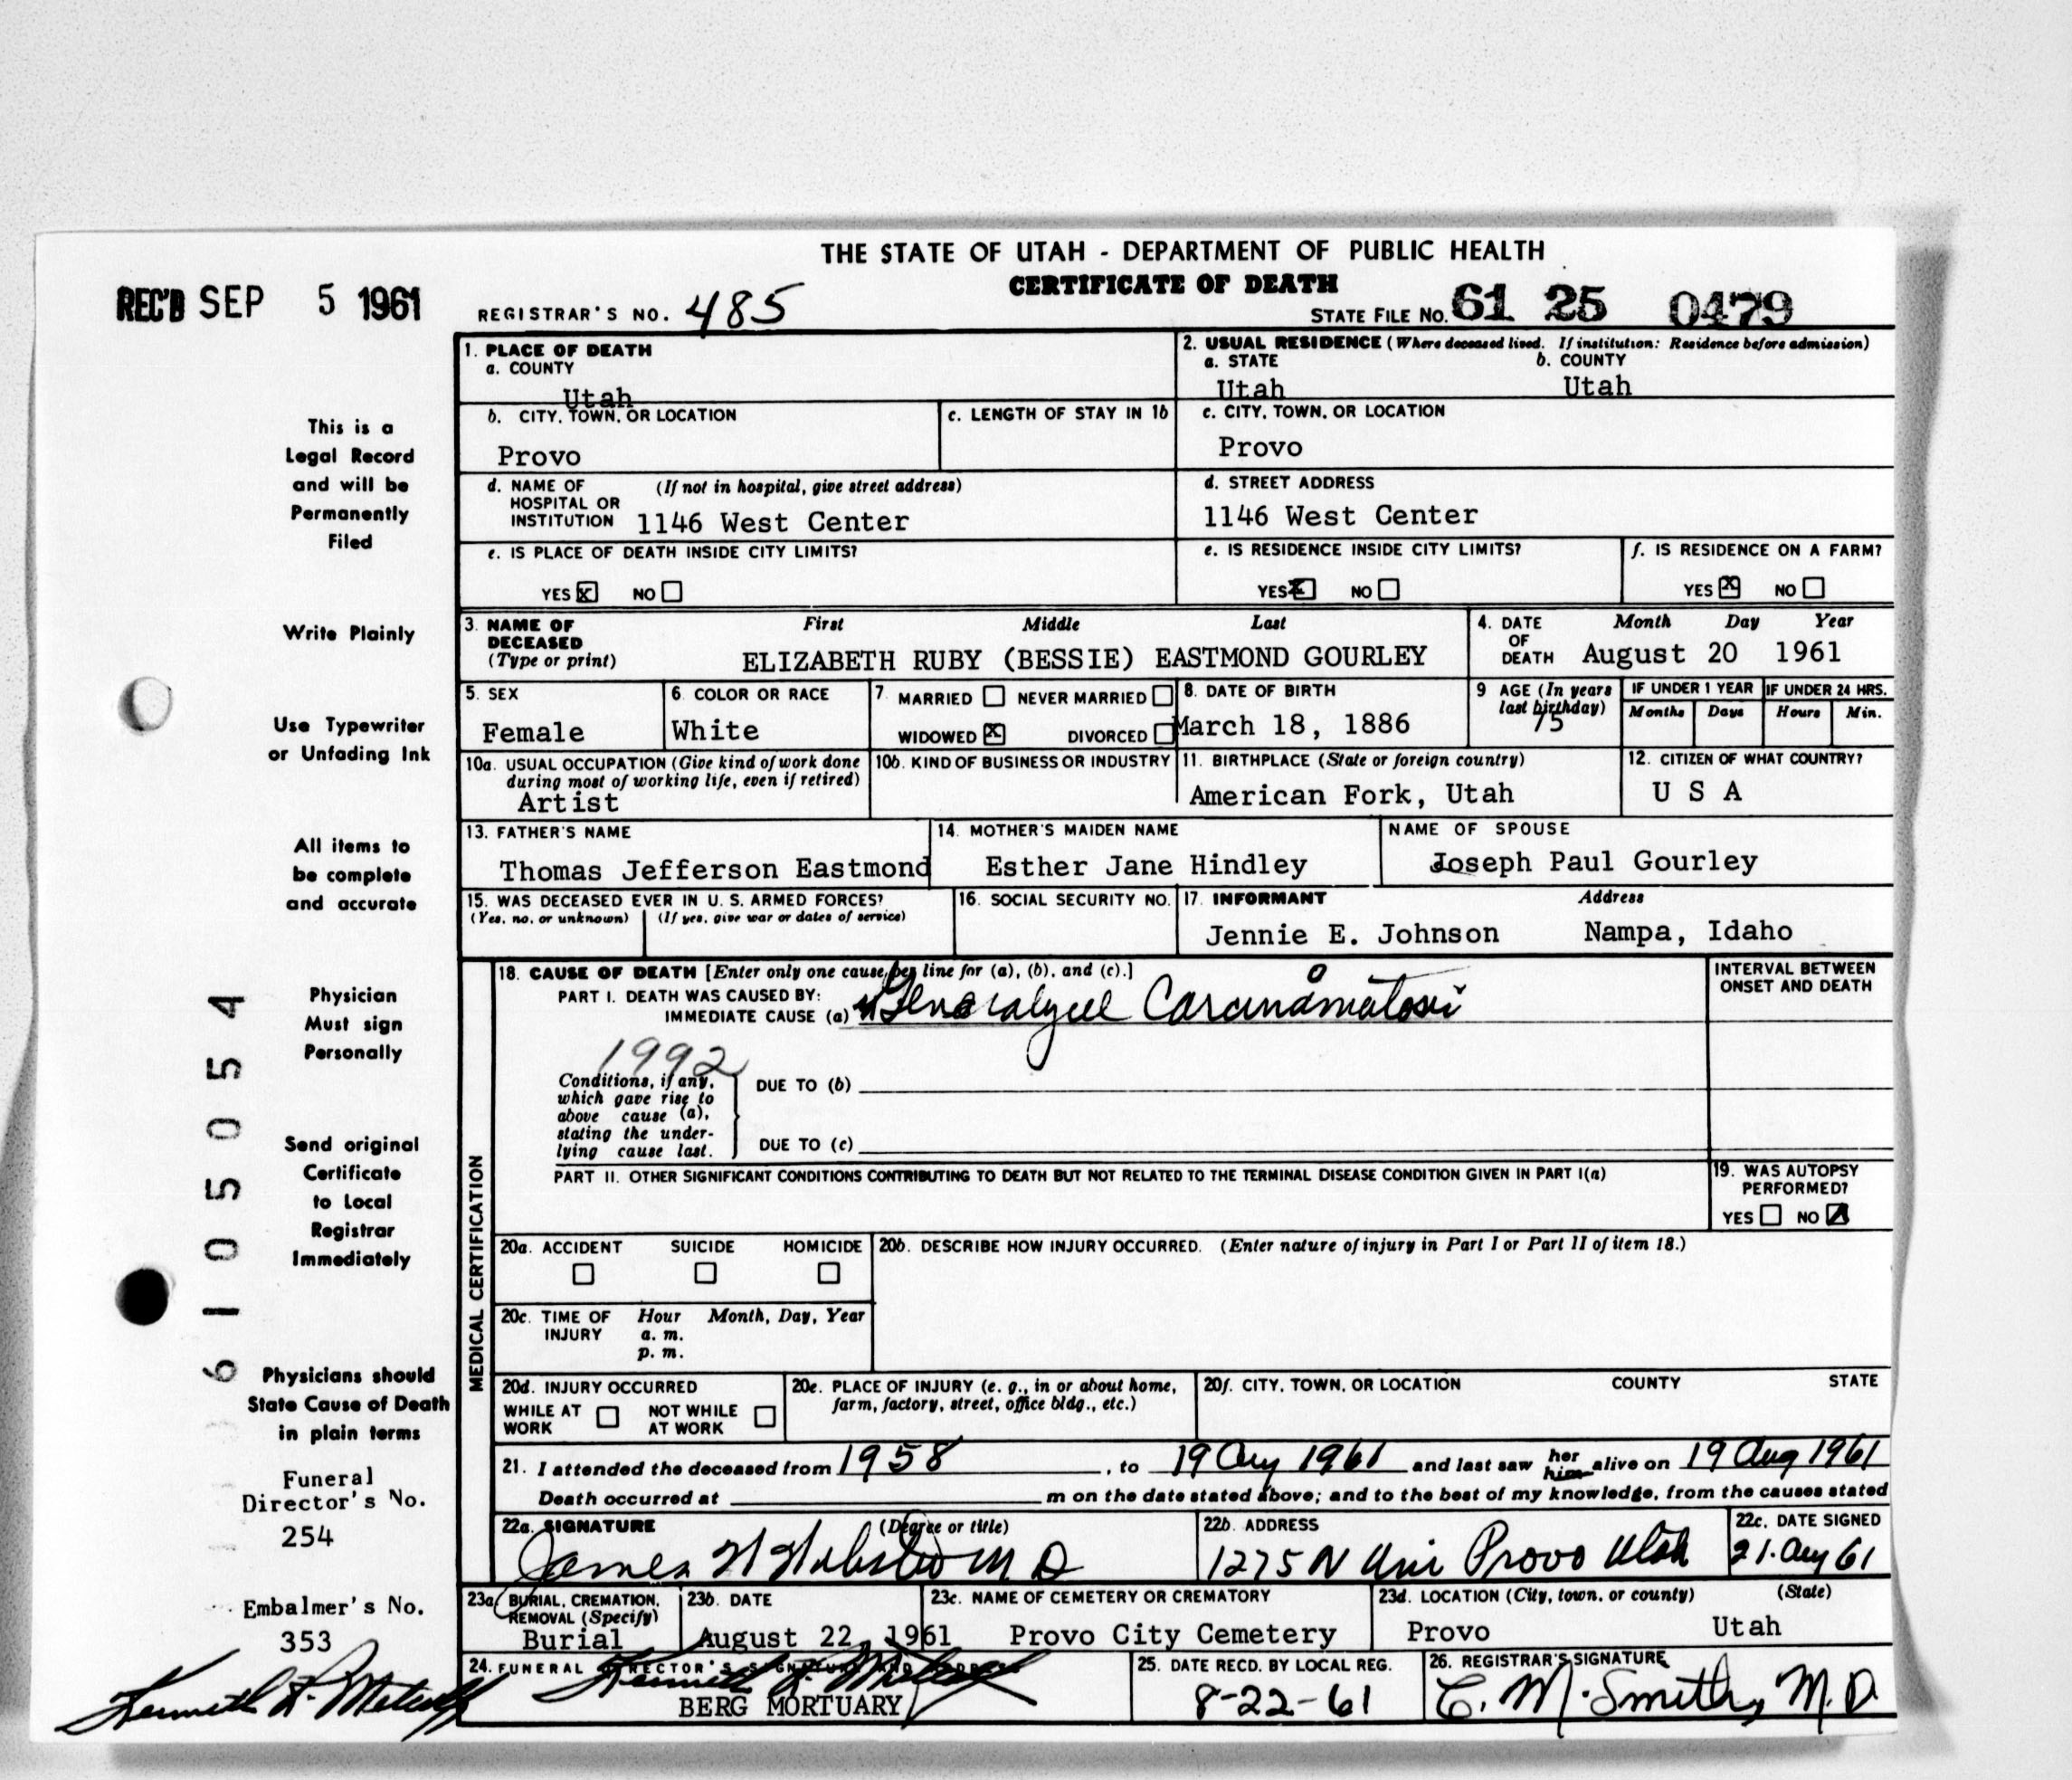 THE STATE OF UTAH - DEPARTMENT OF PUBLIC HEALTH
CERTIFICATE OF DEATH
REC'D SEP 5 1961
REGISTRAR'S NO. 485
STATE FILE NO. 61 25 0479
1. PLACE OF DEATH
a. COUNTY
Utah
2. USUAL RESIDENCE (Where deceased lived. If institution: Residence before admission)
a. STATE b. COUNTY
Utah Utah
b. CITY, TOWN, OR LOCATION
Provo
c. LENGTH OF STAY IN 1b
c. CITY, TOWN, OR LOCATION
Provo
d. NAME OF (If not in hospital, give street address)
HOSPITAL OR
INSTITUTION 1146 West Center
d. STREET ADDRESS
1146 West Center
e. IS PLACE OF DEATH INSIDE CITY LIMITS?
YES X NO
e. IS RESIDENCE INSIDE CITY LIMITS?
YES X NO
f. IS RESIDENCE ON A FARM?
YES X NO
3. NAME OF First Middle Last
DECEASED
(Type or print) ELIZABETH RUBY (BESSIE) EASTMOND GOURLEY
4. DATE Month Day Year
OF
DEATH August 20 1961
5. SEX
Female
6. COLOR OR RACE
White
7. MARRIED NEVER MARRIED
WIDOWED X DIVORCED
8. DATE OF BIRTH
March 18, 1886
9 AGE (In years
last birthday)
75
IF UNDER 1 YEAR IF UNDER 24 HRS.
Months Days Hours Min.
10a. USUAL OCCUPATION (Give kind of work done
during most of working life, even if retired)
Artist
10b. KIND OF BUSINESS OR INDUSTRY
11. BIRTHPLACE (State or foreign country)
American Fork, Utah
12. CITIZEN OF WHAT COUNTRY?
U S A
13. FATHER'S NAME
Thomas Jefferson Eastmond
14. MOTHER'S MAIDEN NAME
Esther Jane Hindley
NAME OF SPOUSE
Joseph Paul Gourley
15. WAS DECEASED EVER IN U. S. ARMED FORCES?
(Yes, no, or unknown) (If yes, give war or dates of service)
16. SOCIAL SECURITY NO.
17. INFORMANT Address
Jennie E. Johnson Nampa, Idaho
MEDICAL CERTIFICATION
18. CAUSE OF DEATH [Enter only one cause per line for (a), (b), and (c).]
PART I. DEATH WAS CAUSED BY:
IMMEDIATE CAUSE (a) Carcinomatosis
INTERVAL BETWEEN
ONSET AND DEATH
1992
Conditions, if any,
which gave rise to
above cause (a),
stating the under-
lying cause last.
DUE TO (b)
DUE TO (c)
PART II. OTHER SIGNIFICANT CONDITIONS CONTRIBUTING TO DEATH BUT NOT RELATED TO THE TERMINAL DISEASE CONDITION GIVEN IN PART I(a)
19. WAS AUTOPSY
PERFORMED?
YES NO
20a. ACCIDENT SUICIDE HOMICIDE
20b. DESCRIBE HOW INJURY OCCURRED. (Enter nature of injury in Part I or Part II of item 18.)
20c. TIME OF Hour Month, Day, Year
INJURY a. m.
p. m.
20d. INJURY OCCURRED
WHILE AT NOT WHILE
WORK AT WORK
20e. PLACE OF INJURY (e. g., in or about home,
farm, factory, street, office bldg., etc.)
20f. CITY, TOWN, OR LOCATION COUNTY STATE
21. I attended the deceased from 1958, to 19 Aug 1961 and last saw her him alive on 19 Aug 1961
Death occurred at m on the date stated above; and to the best of my knowledge, from the causes stated
22a. SIGNATURE (Degree or title)
James M D
22b. ADDRESS
1275 N Uni Provo Utah
22c. DATE SIGNED
21. Aug 61
23a. BURIAL, CREMATION,
REMOVAL (Specify)
Burial
23b. DATE
August 22, 1961
23c. NAME OF CEMETERY OR CREMATORY
Provo City Cemetery
23d. LOCATION (City, town, or county) (State)
Provo Utah
24. FUNERAL DIRECTOR'S SIGNATURE AND ADDRESS
BERG MORTUARY
25. DATE RECD. BY LOCAL REG.
8-22-61
26. REGISTRAR'S SIGNATURE
C. M. Smith, M.D
This is a
Legal Record
and will be
Permanently
Filed
Write Plainly
Use Typewriter
or Unfading Ink
All items to
be complete
and accurate
Physician
Must sign
Personally
Send original
Certificate
to Local
Registrar
Immediately
Physicians should
State Cause of Death
in plain terms
Funeral
Director's No.
254
Embalmer's No.
353
Kenneth
6105054